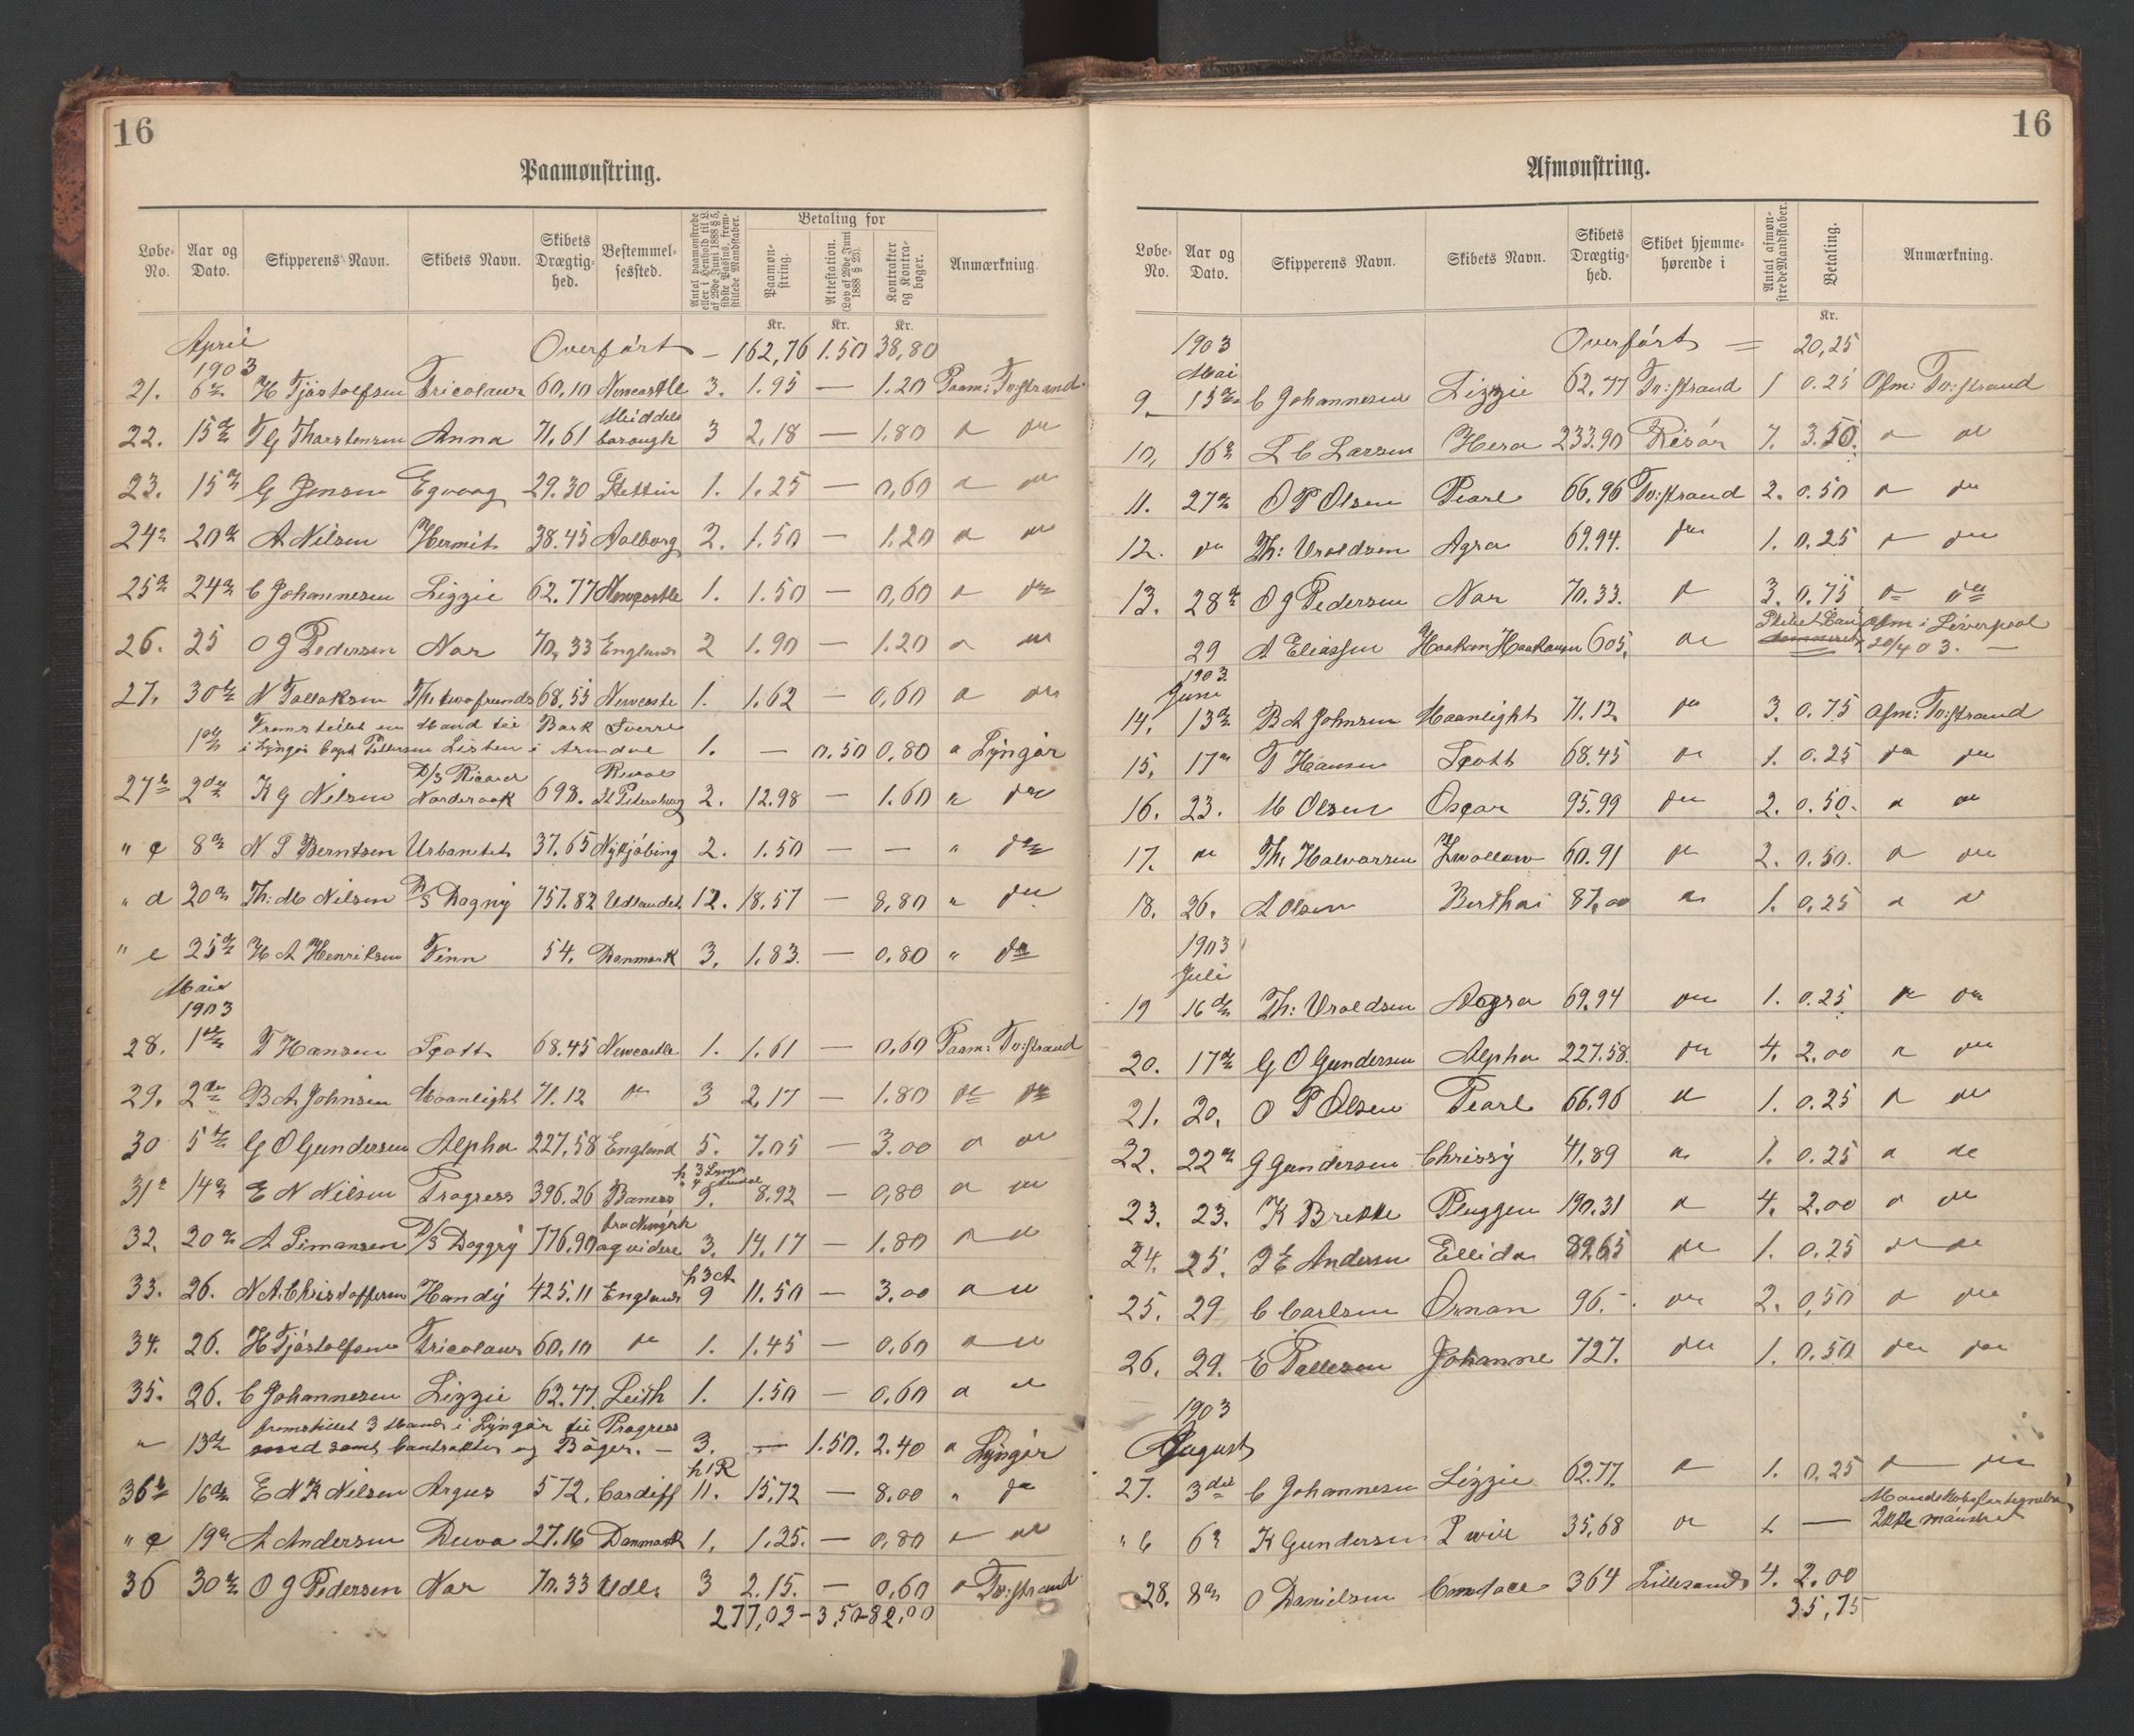 16
Paamønstring.
Løbe-No. Aar og Dato. Skipperens Navn. Skibets Navn. Skibets Drægtighed. Bestemmelsessted. Antal paamønstrede eller i Henhold til L. af 29de Juni 1888 § 5, sidste Passus, fremstillede Mandskaber. Betaling for Paamønstring. Attestation. (Lov af 29de Juni 1888 § 23). Kontrakter og Kontrabøger. Anmærkning
Kr. Kr. Kr.
April Overført — 162,76 1.50 38,80
1903
21. 6 H Tjøstolfsen Tricolaur 60,10 Newcastle 3. 1.95 — 1.20 Paam: Tv:strand
22. 15 T G Tharstensen Anna 71,61 Middelsborough 3 2,18 — 1.80
23. 15 G Jensen Egvaag 29.30 Stettin 1. 1.25 — 0,60
24 20 A Nilsen Hermit 38.45 Aalborg 2. 1.50 — 1.20
25 24 C Johannesen Lizzie 62.77 Newcastle 1. 1.50 — 0,60
26. 25 O J Pedersen Nor 70,33 England 2 1.90 — 1.20
27. 30 N Tallaksen The two frunds 68,55 Newcaste 1. 1.62 — 0,60
1 Fremstillet en Mand til Bark Sverre
i Lyngør Capt Pettersen Listen i Arendal 1. — 0.50 0,80 Lyngør
27 2 K G Nilsen D/S Ricard Nordraak 698. Reval St Petersburg 2. 12.98 — 1.60
" c 8 N P Berntsen Urbanitet 37.65 Nykjøbing 2. 1.50 — —
" d 20 Th: M Nilsen D/S Dagny 757.82 Udlandet 12. 18.57 — 8,80
" e 25 H A Henriksen Finn 54. Danmark 3. 1,83. — 0,80
Mai
1903
28. 1 T Hansen Scott 68.45 Newcastle 1. 1.61 — 0,60 Paam: Tv:strand
29. 2 B A Johnsen Moonlight 71.12 3 2,17 — 1.80
30 5 G O Gundersen Alpha 227,58 England 5. 7.05 — 3.00
31 14 E N Nilsen Progress 396.26 9. 8.92 — 0,80
32. 20 A Simonsen D/S Daggry 776,90 fra Newyork og videre 3. 14,17 — 1.80
33. 26. N A Christoffersen Handy 425.11 England 9 11.50 — 3.00
34. 26. H Tjøstolfsen Tricolaur 60,10 1. 1.45 — 0,60
35. 26. C Johannesen Lizzie 62.77. Leith 1. 1.50 — 0,60
13 fremstillet 3 Mand i Lyngør til Progress
med samt Contrakter og Bøger. — 3. — 1.50. 2.40 Lyngør
36 16 E N K Nilsen Argus 572, Cardiff 11. 15,72 — 8,00
" c 19 A Andersen Duva 27.16 Danmark 1, 1.25. — 0,80
36 30 O J Pedersen Nor 70.33 Udl. 3 2.15. — 0,60 Tv:strand
277,03 - 3,50 - 82,00
16
Afmønstring.
Løbe-No. Aar og Dato. Skipperens Navn. Skibets Navn. Skibets Drægtighed. Skibet hjemmehørende i Antal afmønstrede Mandskaber. Betaling. Anmærkning.
Kr.
1903 Overført = 20,25
Mai
9. 13 C Johannesen Lizzie 62,77 Tv:strand 1 0.25 Afm: Tv:strand
10, 16 L C Larsen Hera 233.90 Risør 7. 3.50.
11. 27 O P Olsen Pearl 66.96 Tv:strand 2. 0.50
12. Th: Uroldsen Agra 69.94. 1. 0.25
13. 28 O J Pedersen Nor 70.33. 3. 0,75
29 A Eliassen Haakon Haakonsen 605, afm i Liverpool
20/4 03. —
1903.
Juni
14, 13 B A Johnsen Moonlight 71.12 3. 0.75 Afm: Tv:strand
15, 17 T Hansen Scott 68.45 1. 0.25
16. 23. M Olsen Oscar 95.99 2. 0.50.
17. Th. Halvorsen Zwollow 60.91 2. 0.50.
18. 26. A Olsen Berthai 87,00 1. 0,25
1903
Juli
19 16 Th: Uroldsen Aagra 69.94 1. 0.25
20. 17 G O Gundersen Alpha 227.58. 4. 2.00
21. 20. O P Olsen Pearl 66.96 1. 0.25
22. 22 G Gundersen Chrissy 41,89 1. 0.25
23. 23. K Brekke Pluggen 190.31 4. 2.00
24. 25. Andersen Ellida 8265 1. 0.25
25. 29 C Carlsen Ornan 96.- 2. 0,50
26. 29. E Pallesen Johanne 727. 1. 0.50
1903
August
27. 3 C Johannesen Lizzie 62.77. 1. 0,25
" b 6 K Gundersen I will 35,68 — Mandskabsfortegnelse
Ikke mønstret
28. 8 O Danielsen 364 Lillesand 4. 2.00
35,75